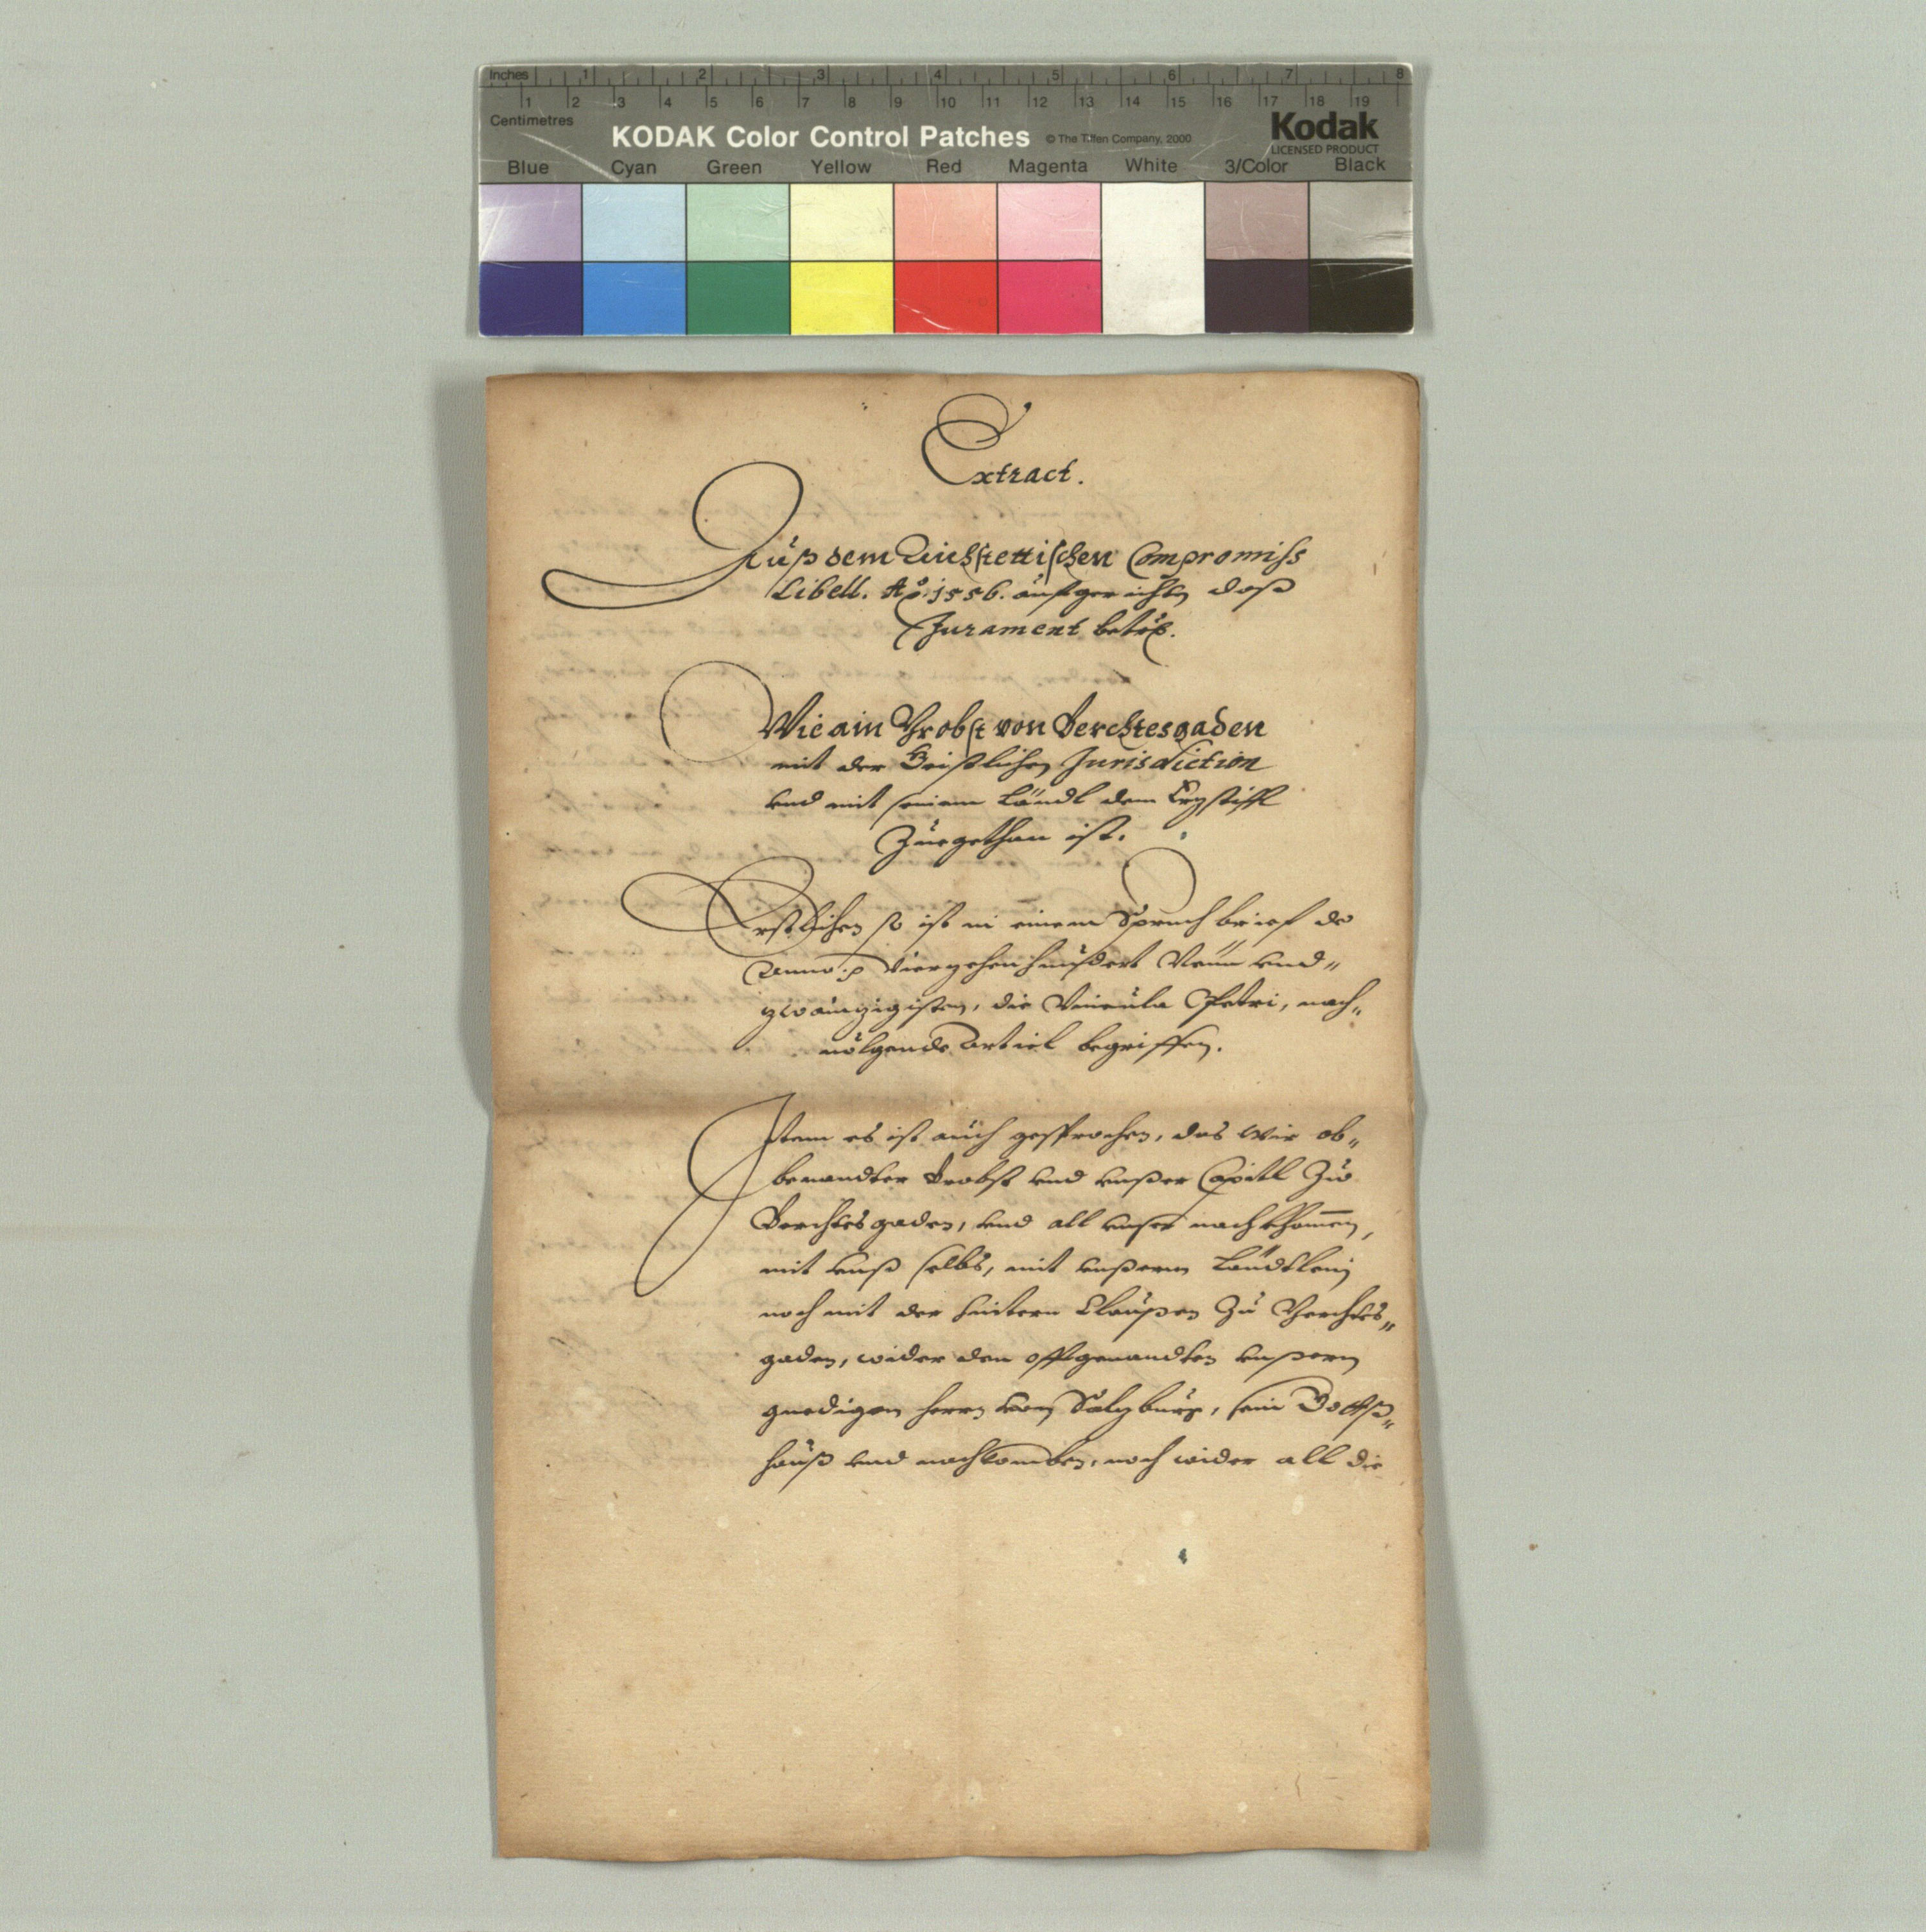 Inches 1 2 3 4 5 6 7 8
1 2 3 4 5 6 7 8 9 10 11 12 13 14 15 16 17 18 19
Centimetres
KODAK Color Control Patches © The Tiffen Company, 2000 Kodak
LICENSED PRODUCT
Blue Cyan Green Yellow Red Magenta White 3/Color Black
Extract.
Auß dem Aichstettischen Compromiss
Libell. Aõ. 1556. aufgerichten daß
Jurament betr.
Wie ain Probst von Berchtesgaden
mit der Geistlichen Jurisdiction
vnd mit seinem Ländl dem Erzstifft
Zuegethan ist.
Erstlichen so ist in einem Spruchbrief de
Anno p Vierzehenhundert Neun vnd„
zwainzigisten, die Vincula Petri, nach„
uolgende Articl begriffen.
Item es ist auch gesprochen, das Wir ob„
benandter Probst vnd vnßer Capitl Zu
Berchtesgaden, vnd all vnser nachkhomen,
mit vnß selbs, mit vnßerm Ländtlein
noch mit der hintern Claußen Zu Berchtes„
gaden, wider den offtgenandten vnßern
gnedigen herrn von Salzburg, sein Gottß„
hauß vnd nachkomben, noch wider all die